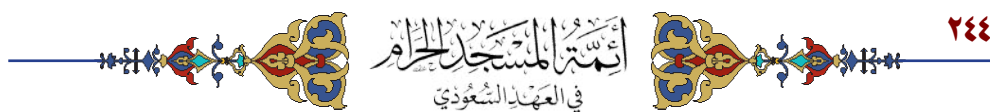 ٢٤٤
أَئِمَّةُ المَسْجِدِ الحَرَامِ
فِي العَهْدِ السُّعُودِيِّ